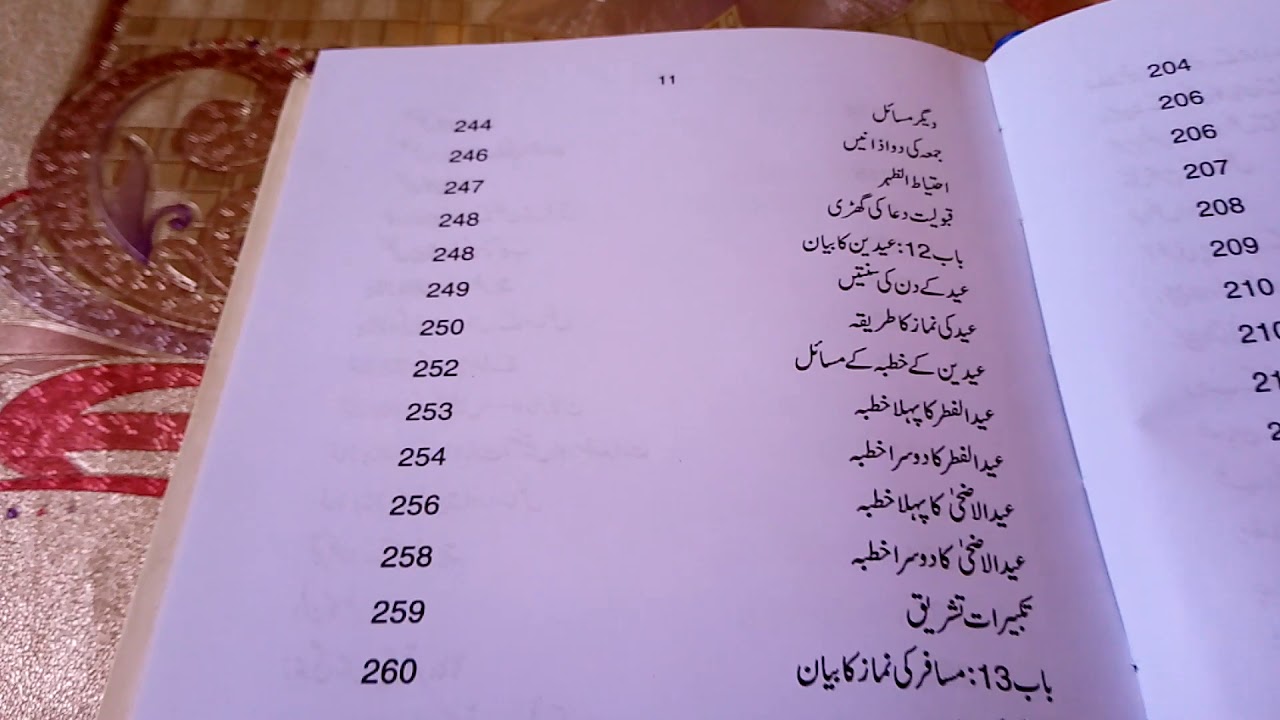 11
دیگر مسائل 244
جمعہ کی دو اذانیں 246
احتیاط الظہر 247
قبولیت دعا کی گھڑی 248
باب 12: عیدین کا بیان 248
عید کے دن کی سنتیں 249
عید کی نماز کا طریقہ 250
عیدین کے خطبہ کے مسائل 252
عید الفطر کا پہلا خطبہ 253
عید الفطر کا دوسرا خطبہ 254
عید الاضحیٰ کا پہلا خطبہ 256
عید الاضحیٰ کا دوسرا خطبہ 258
تکبیرات تشریق 259
باب 13: مسافر کی نماز کا بیان 260
204
206
206
207
208
209
210
210